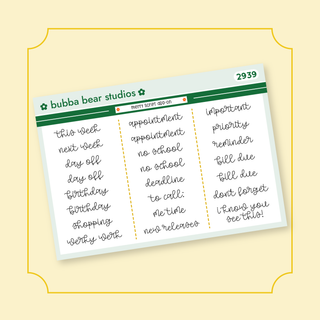 bubba bear studios
2939
merry script add-on
this week
next week
day off
day off
birthday
birthday
shopping
werky werk
appointment
appointment
no school
no school
deadline
to call:
me time
new releases
important
priority
reminder
bill due
bill due
dont forget
i know you
see this!